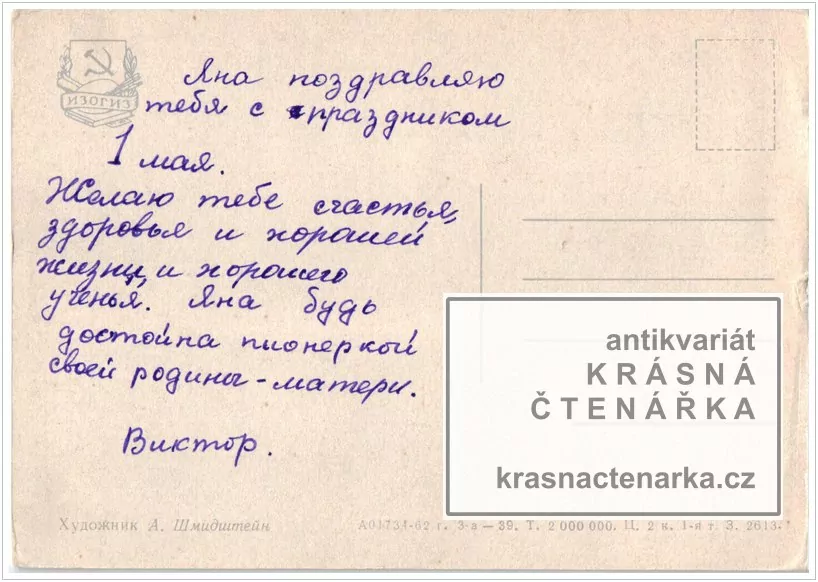 ИЗОГИЗ
Яна поздравляю
тебя с праздником
1 мая.
Желаю тебе счастья,
здоровья и хорошей
жизни, и хорошего
ученья. Яна будь
достойна пионеркой
своей родины-матери.
Виктор.
antikvariát
KRÁSNÁ
ČTENÁŘKA
krasnactenarka.cz
Художник А. Шмидштейн
А01734-62 г. 3-в — 39. Т. 2 000 000. Ц. 2 к. 1-я т. З. 2613-